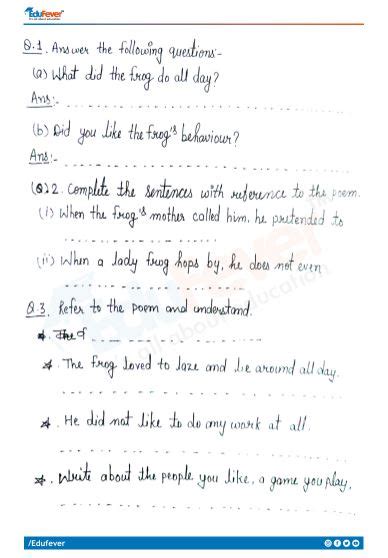 EduFever
Q.1. Answer the following questions:-
(a) What did the frog do all day?
Ans:-
(b) Did you like the frog's behaviour?
Ans:-
(Q).2. Complete the sentences with reference to the poem.
(i) When the frog's mother called him, he pretended to
(ii) When a lady frog hops by, he does not even
Q.3. Refer to the poem and understand.
The f
The frog loved to laze and lie around all day.
He did not like to do any work at all.
Write about the people you like, a game you play.
/Edufever